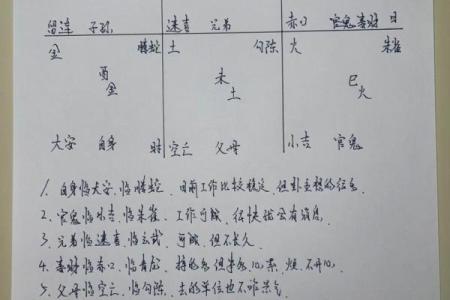 留连 子孙 速喜 兄弟 赤口 官鬼 妻财 日
金 螣蛇 土 勾陈 火 朱雀
酉 未 巳
金 土 火
大安 自身 时 空亡 父母 小吉 官鬼
1. 自身临大安、临螣蛇、目前工作比较稳定、但
2. 官鬼临小吉、临朱雀、工作可
3. 兄弟临速喜、临玄武、可 、但不长久
4. 妻财临赤口、临青龙、挣的 但 心 烦、不开心
5. 父母临空亡、临勾陈、去的单位也不咋景气